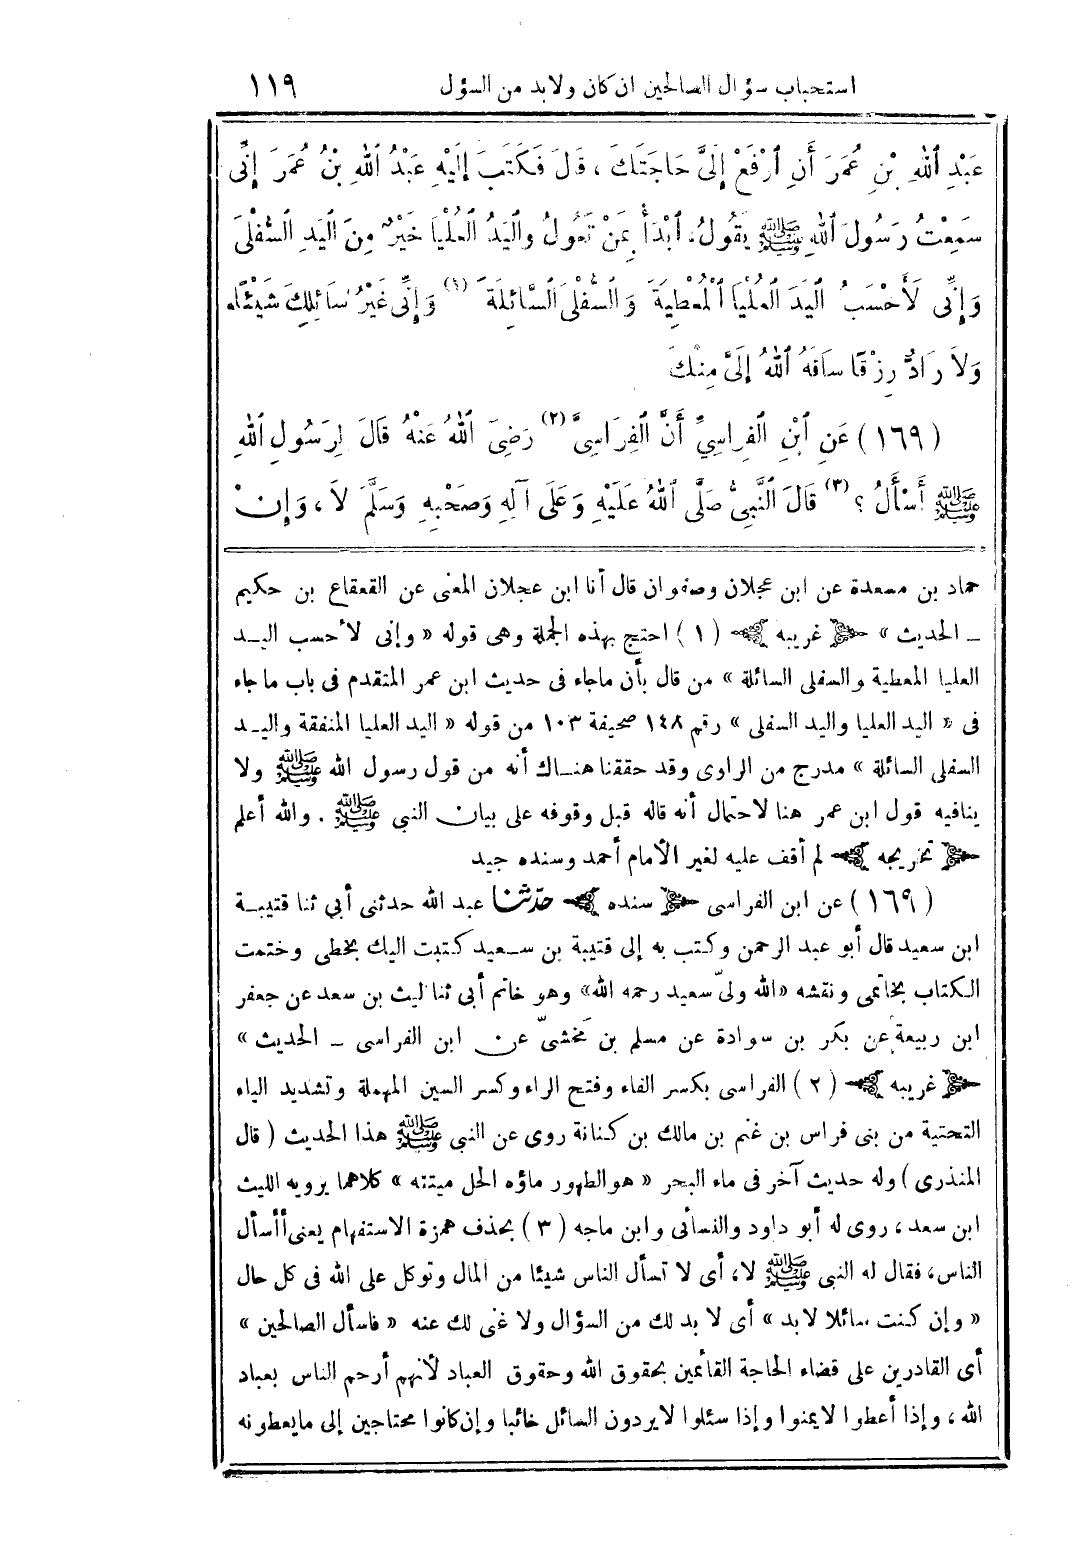 استحباب سؤال الصالحين ان كان ولابد من السؤل ١١٩
عَبْدِ ٱللهِ بْنِ عُمَرَ أَنِ ٱرْفَعْ إِلَىَّ حَاجَتَكَ ، قَلَ فَكَتَبَ إِلَيْهِ عَبْدُ ٱللهِ بْنُ عُمَرَ إِنِّى
سَمِعْتُ رَسُولَ ٱللهِ ﷺ يَقُولُ. ٱبْدَأْ بِمَنْ تَعُولُ وٱلْيَدُ ٱلْعُلْيَا خَيْرٌ مِنَ ٱلْيَدِ ٱلسُّفْلَى
وَإِنِّى لَأَحْسَبُ ٱلْيَدَ ٱلْعُلْيَا ٱلْمُعْطِيَةَ وَٱلسُّفْلَى ٱلسَّائِلَةَ (١) وَإِنِّى غَيْرُ سَائِلِكَ شَيْئًا.
وَلاَ رَادٌّ رِزْقًا سَاقَهُ ٱللهُ إِلَىَّ مِنْكَ
( ١٦٩ ) عَنِ ٱبْنِ ٱلْفِرَاسِيِّ أَنَّ ٱلْفِرَاسِىَّ (٢) رَضِىَ ٱللهُ عَنْهُ قَالَ لِرَسُولِ ٱللهِ
ﷺ أَسْأَلُ ؟ (٣) قَالَ ٱلنَّبِىُّ صَلَّى ٱللهُ عَلَيْهِ وَعَلَى آلِهِ وَصَحْبِهِ وَسَلَّمَ لاَ ، وَإِنْ
حماد بن مسعدة عن ابن عجلان وصفوان قال أنا ابن عجلان المعنى عن القعقاع بن حكيم
ــ الحديث » غريبه ( ١ ) احتج بهذه الجملة وهى قوله « وإنى لأحسب اليد
العليا المعطية والسفلى السائلة » من قال بأن ماجاء فى حديث ابن عمر المتقدم فى باب ما جاء
فى « اليد العليا واليد السفلى » رقم ١٤٨ صحيفة ١٠٣ من قوله « اليد العليا المنفقة واليد
السفلى السائلة » مدرج من الراوى وقد حققنا هناك أنه من قول رسول الله ﷺ ولا
ينافيه قول ابن عمر هنا لاحتمال أنه قاله قبل وقوفه على بيان النبى ﷺ . والله أعلم
تخريجه لم أقف عليه لغير الأمام أحمد وسنده جيد
( ١٦٩ ) عن ابن الفراسى سنده حدّثنا عبد الله حدثنى أبي ثنا قتيبة
ابن سعيد قال أبو عبد الرحمن وكتب به إلى قتيبة بن سعيد كتبت اليك بخطى وختمت
الكتاب بخاتمى ونقشه «الله ولىّ سعيد رحمه الله» وهو خاتم أبي ثنا ليث بن سعد عن جعفر
ابن ربيعة عن بكر بن سوادة عن مسلم بن مخشىّ عن ابن الفراسى ــ الحديث »
غريبه ( ٢ ) الفراسى بكسر الفاء وفتح الراء وكسر السين المهملة وتشديد الياء
التحتية من بنى فراس بن غنم بن مالك بن كنانة روى عن النبى ﷺ هذا الحديث ( قال
المنذرى ) وله حديث آخر فى ماء البحر « هو الطهور ماؤه الحل ميتته » كلاهما يرويه الليث
ابن سعد ، روى له أبو داود والنسائى وابن ماجه ( ٣ ) بحذف همزة الاستفهام يعنى أأسأل
الناس، فقال له النبى ﷺ لا، أى لا تسأل الناس شيئا من المال وتوكل على الله فى كل حال
« وإن كنت سائلا لابد » أى لا بد لك من السؤال ولا غنى لك عنه « فاسأل الصالحين »
أى القادرين على قضاء الحاجة القائمين بحقوق الله وحقوق العباد لأنهم أرحم الناس بعباد
الله ، وإذا أعطوا لايمنوا وإذا سئلوا لايردون السائل خائبا وإن كانوا محتاجين إلى مايعطونه